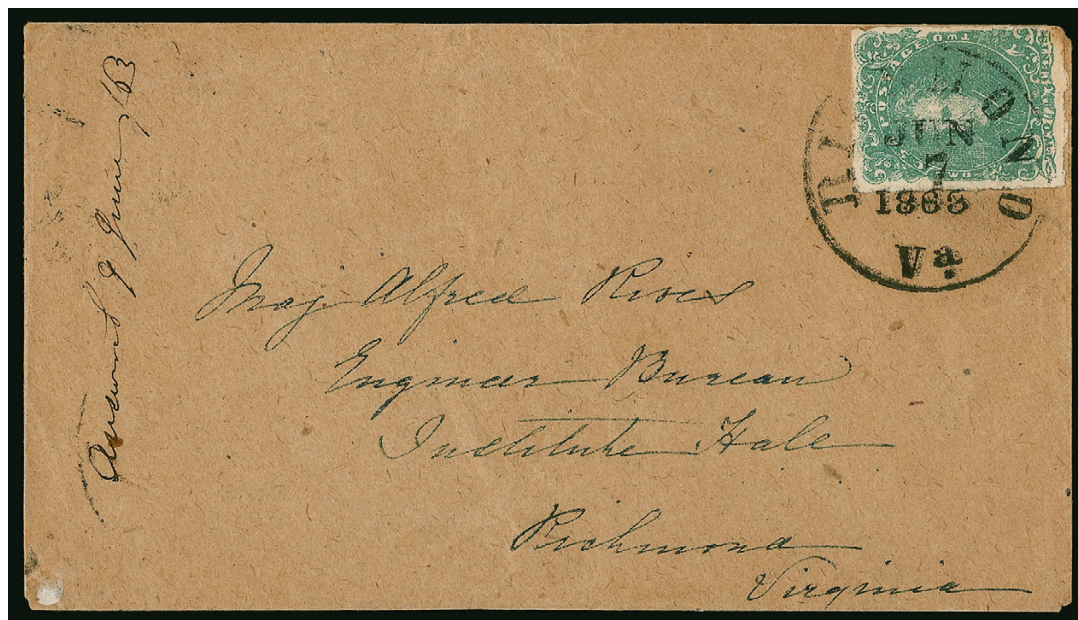 Answered 9 June /63
POSTAGE
TWO
RICHMOND
JUN
7
1863
Va.
Maj Alfred Rives
Engineer Bureau
Institute Hall
Richmond
Virginia